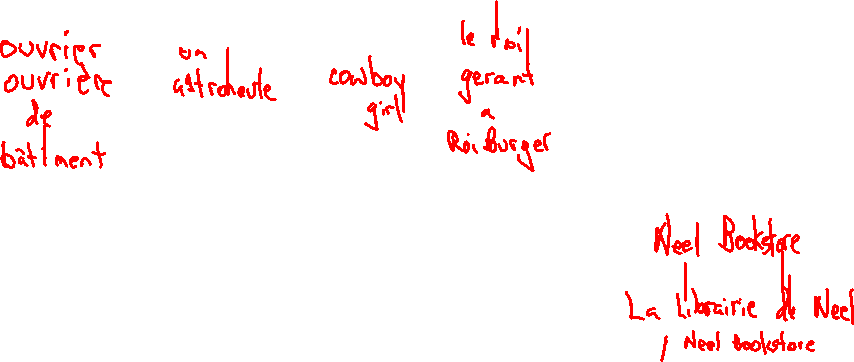 ouvrier
ouvrière
de
bâtiment
un
astronaute
cowboy
girl
le roi
gerant
a
Roi Burger
Neel Bookstore
La librairie de Neel
/ Neel bookstore